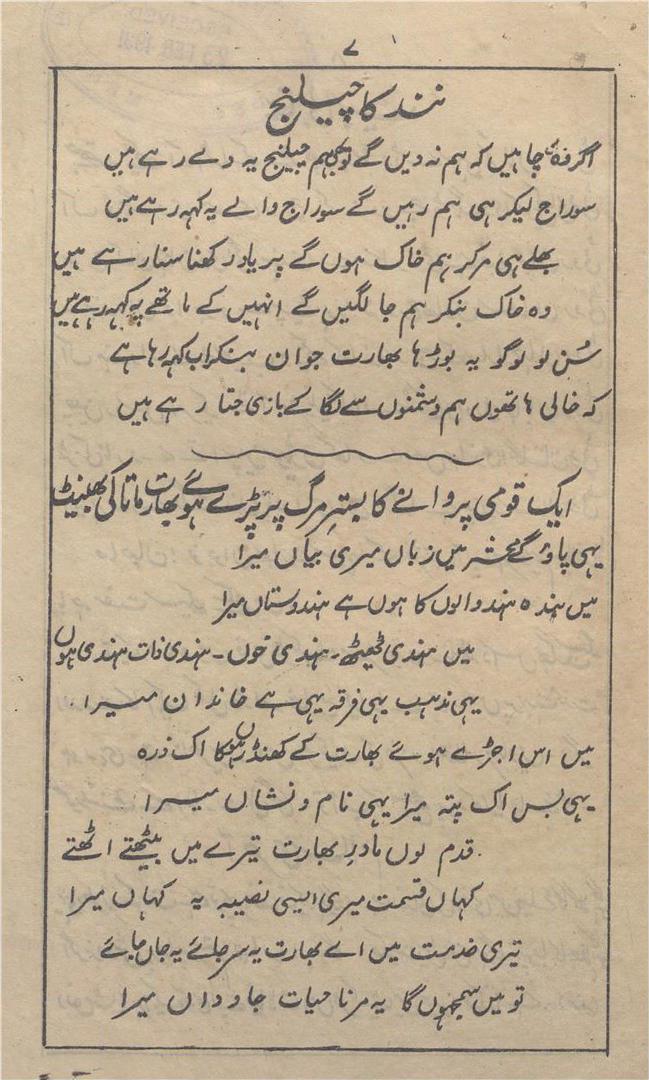 ۷
نند کا چیلنج
اگر وہ چاہیں کہ ہم نہ دیں گے تو بھی ہم چیلنج یہ دے رہے ہیں
سوراج لیکر ہی ہم رہیں گے سوراج والے یہ کہہ رہے ہیں
بھلے ہی مرکر ہم خاک ہوں گے پر یاد رکھنا سنا رہے ہیں
وہ خاک بنکر ہم جا لگیں گے انہیں کے ماتھے پہ کہہ رہے ہیں
سُن لو لوگو یہ بوڑہا بھارت جوان بنکر اب کہہ رہا ہے
کہ خالی ہاتھوں ہم دشمنوں سے لگا کے بازی جتا رہے ہیں
ایک قومی پروانے کا بسترِ مرگ پر پڑے ہوئے بھارت ماتا کی بھینٹ
یہی پاؤ گے محشر میں زباں میری بیاں میرا
میں بندہ ہند والوں کا ہوں ہے ہندوستاں میرا
میں ہندی ٹھیٹھ۔ ہندی خوں۔ ہندی ذات ہندی ہوں
یہی مذہب یہی فرقہ یہی ہے خاندان میرا۔
میں اس اجڑے ہوئے بھارت کے کھنڈروں کا اک ذرہ
یہی بس اک پتہ میرا یہی نام و نشاں میرا
قدم لوں مادرِ بھارت تیرے میں بیٹھتے اٹھتے
کہاں قسمت میری ایسی نصیبہ یہ کہاں میرا
تیری خدمت میں اے بھارت یہ سر جائے یہ جاں جائے
تو میں سمجھوں گا یہ مرنا حیات جاوداں میرا